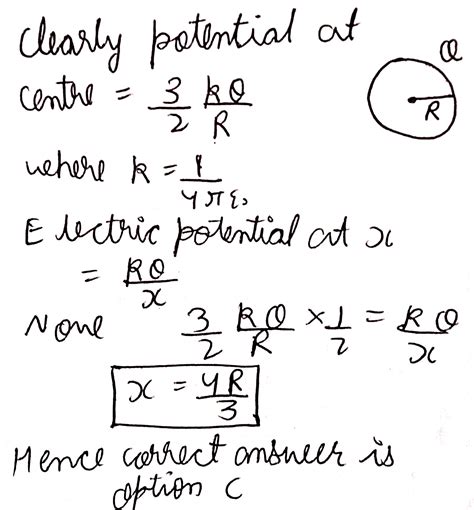 Clearly potential at
centre = 3/2 kQ/R
Q
R
where k = 1/4πε₀
Electric potential at x
= kQ/x
None 3/2 kQ/R × 1/2 = kQ/x
x = 4R/3
Hence correct answer is
option C